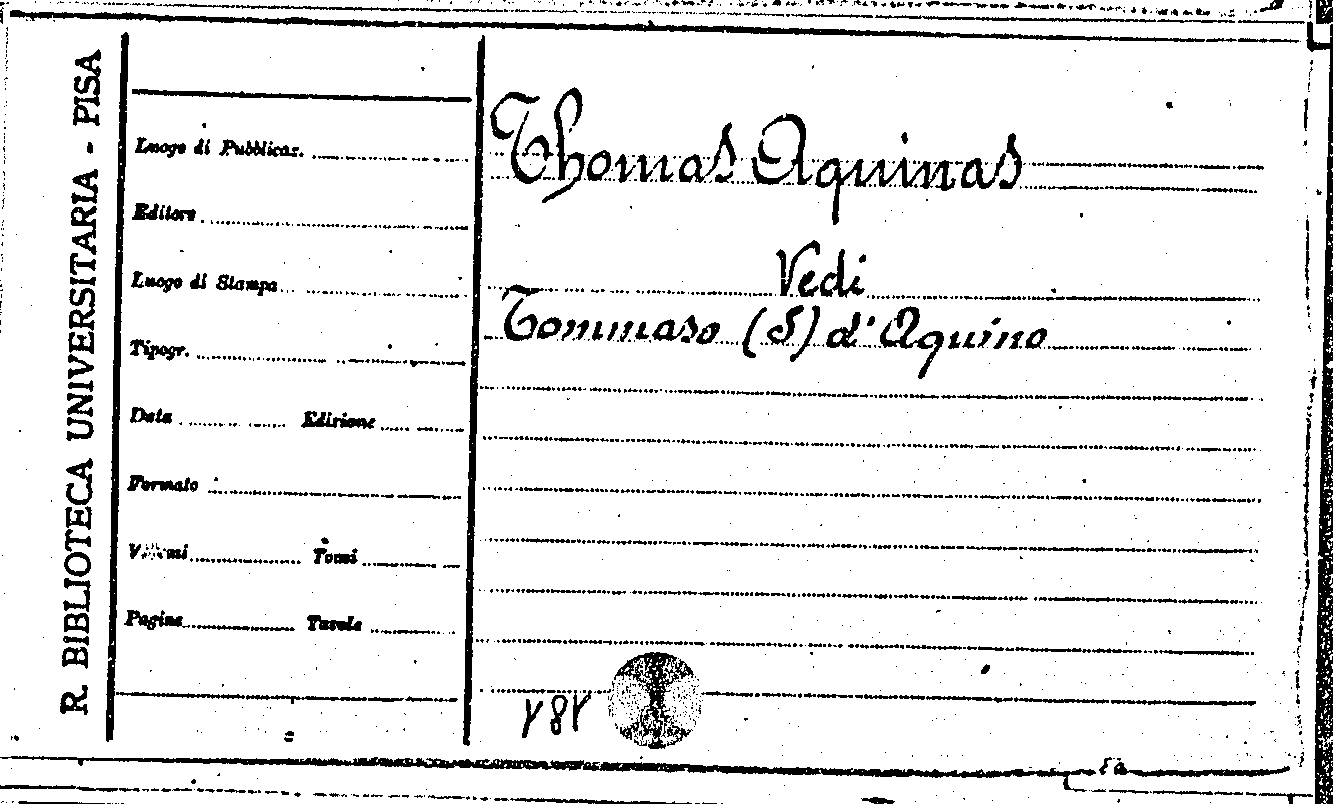 R. BIBLIOTECA UNIVERSITARIA - PISA
Luogo di Pubblicaz.
Editore
Luogo di Stampa
Tipogr.
Data Edizione
Formato
Volumi Tomi
Pagine Tavole
Thomas Aquinas
Vedi
Tommaso (S) d'Aquino